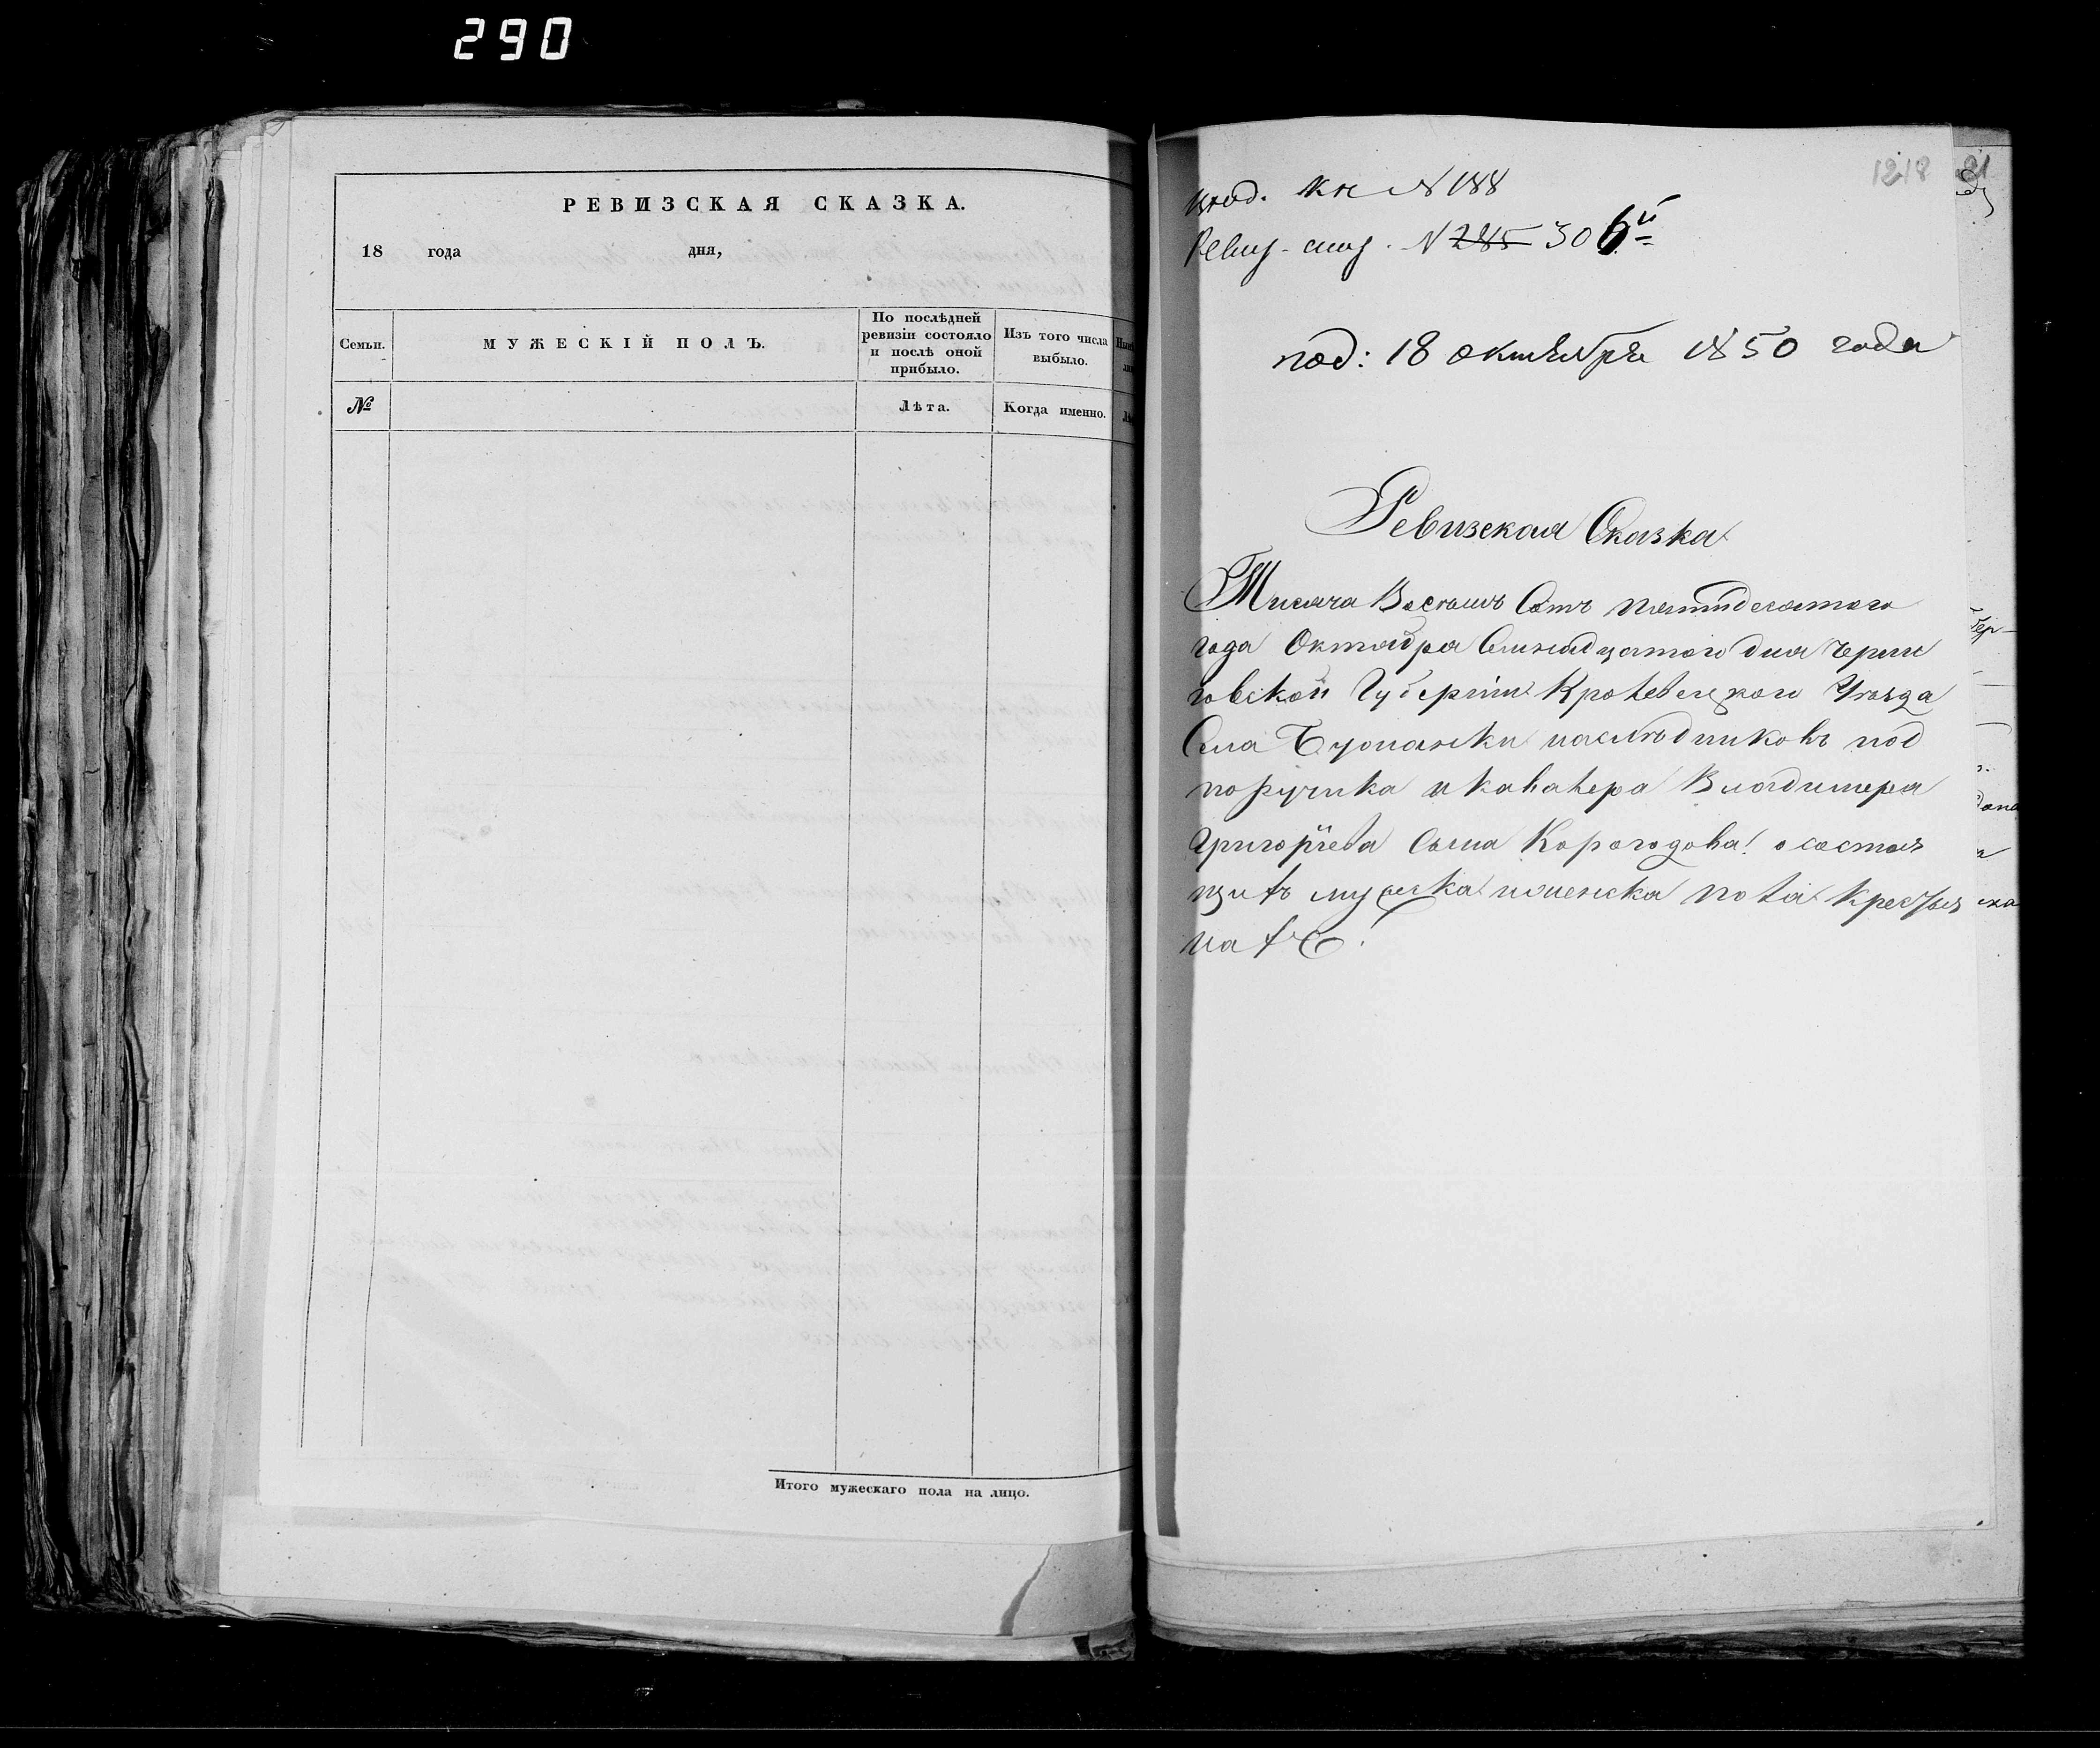 290
РЕВИЗСКАЯ СКАЗКА.
18 года дня,
Семьи.
МУЖЕСКІЙ ПОЛЪ.
По послѣдней ревизіи состояло и послѣ оной прибыло.
Изъ того числа выбыло.
№
Лѣта.
Когда именно.
Итого мужескаго пола на лицо.
1218
вход. кн N 188
Ревиз. N 285 306й
под: 18 октября 1850 года
Ревизская Сказка
Тисяча Восемъ Сотъ пятидесятого
года Октября дня Черни
говской Губерніи Кролевецкого Уѣзда
Села наслѣдниковъ под
поручика и кавалера Владимера
Григорїева Сына Корогодова! о состоя
щихъ мужеска и женска пола крестья
нахъ.